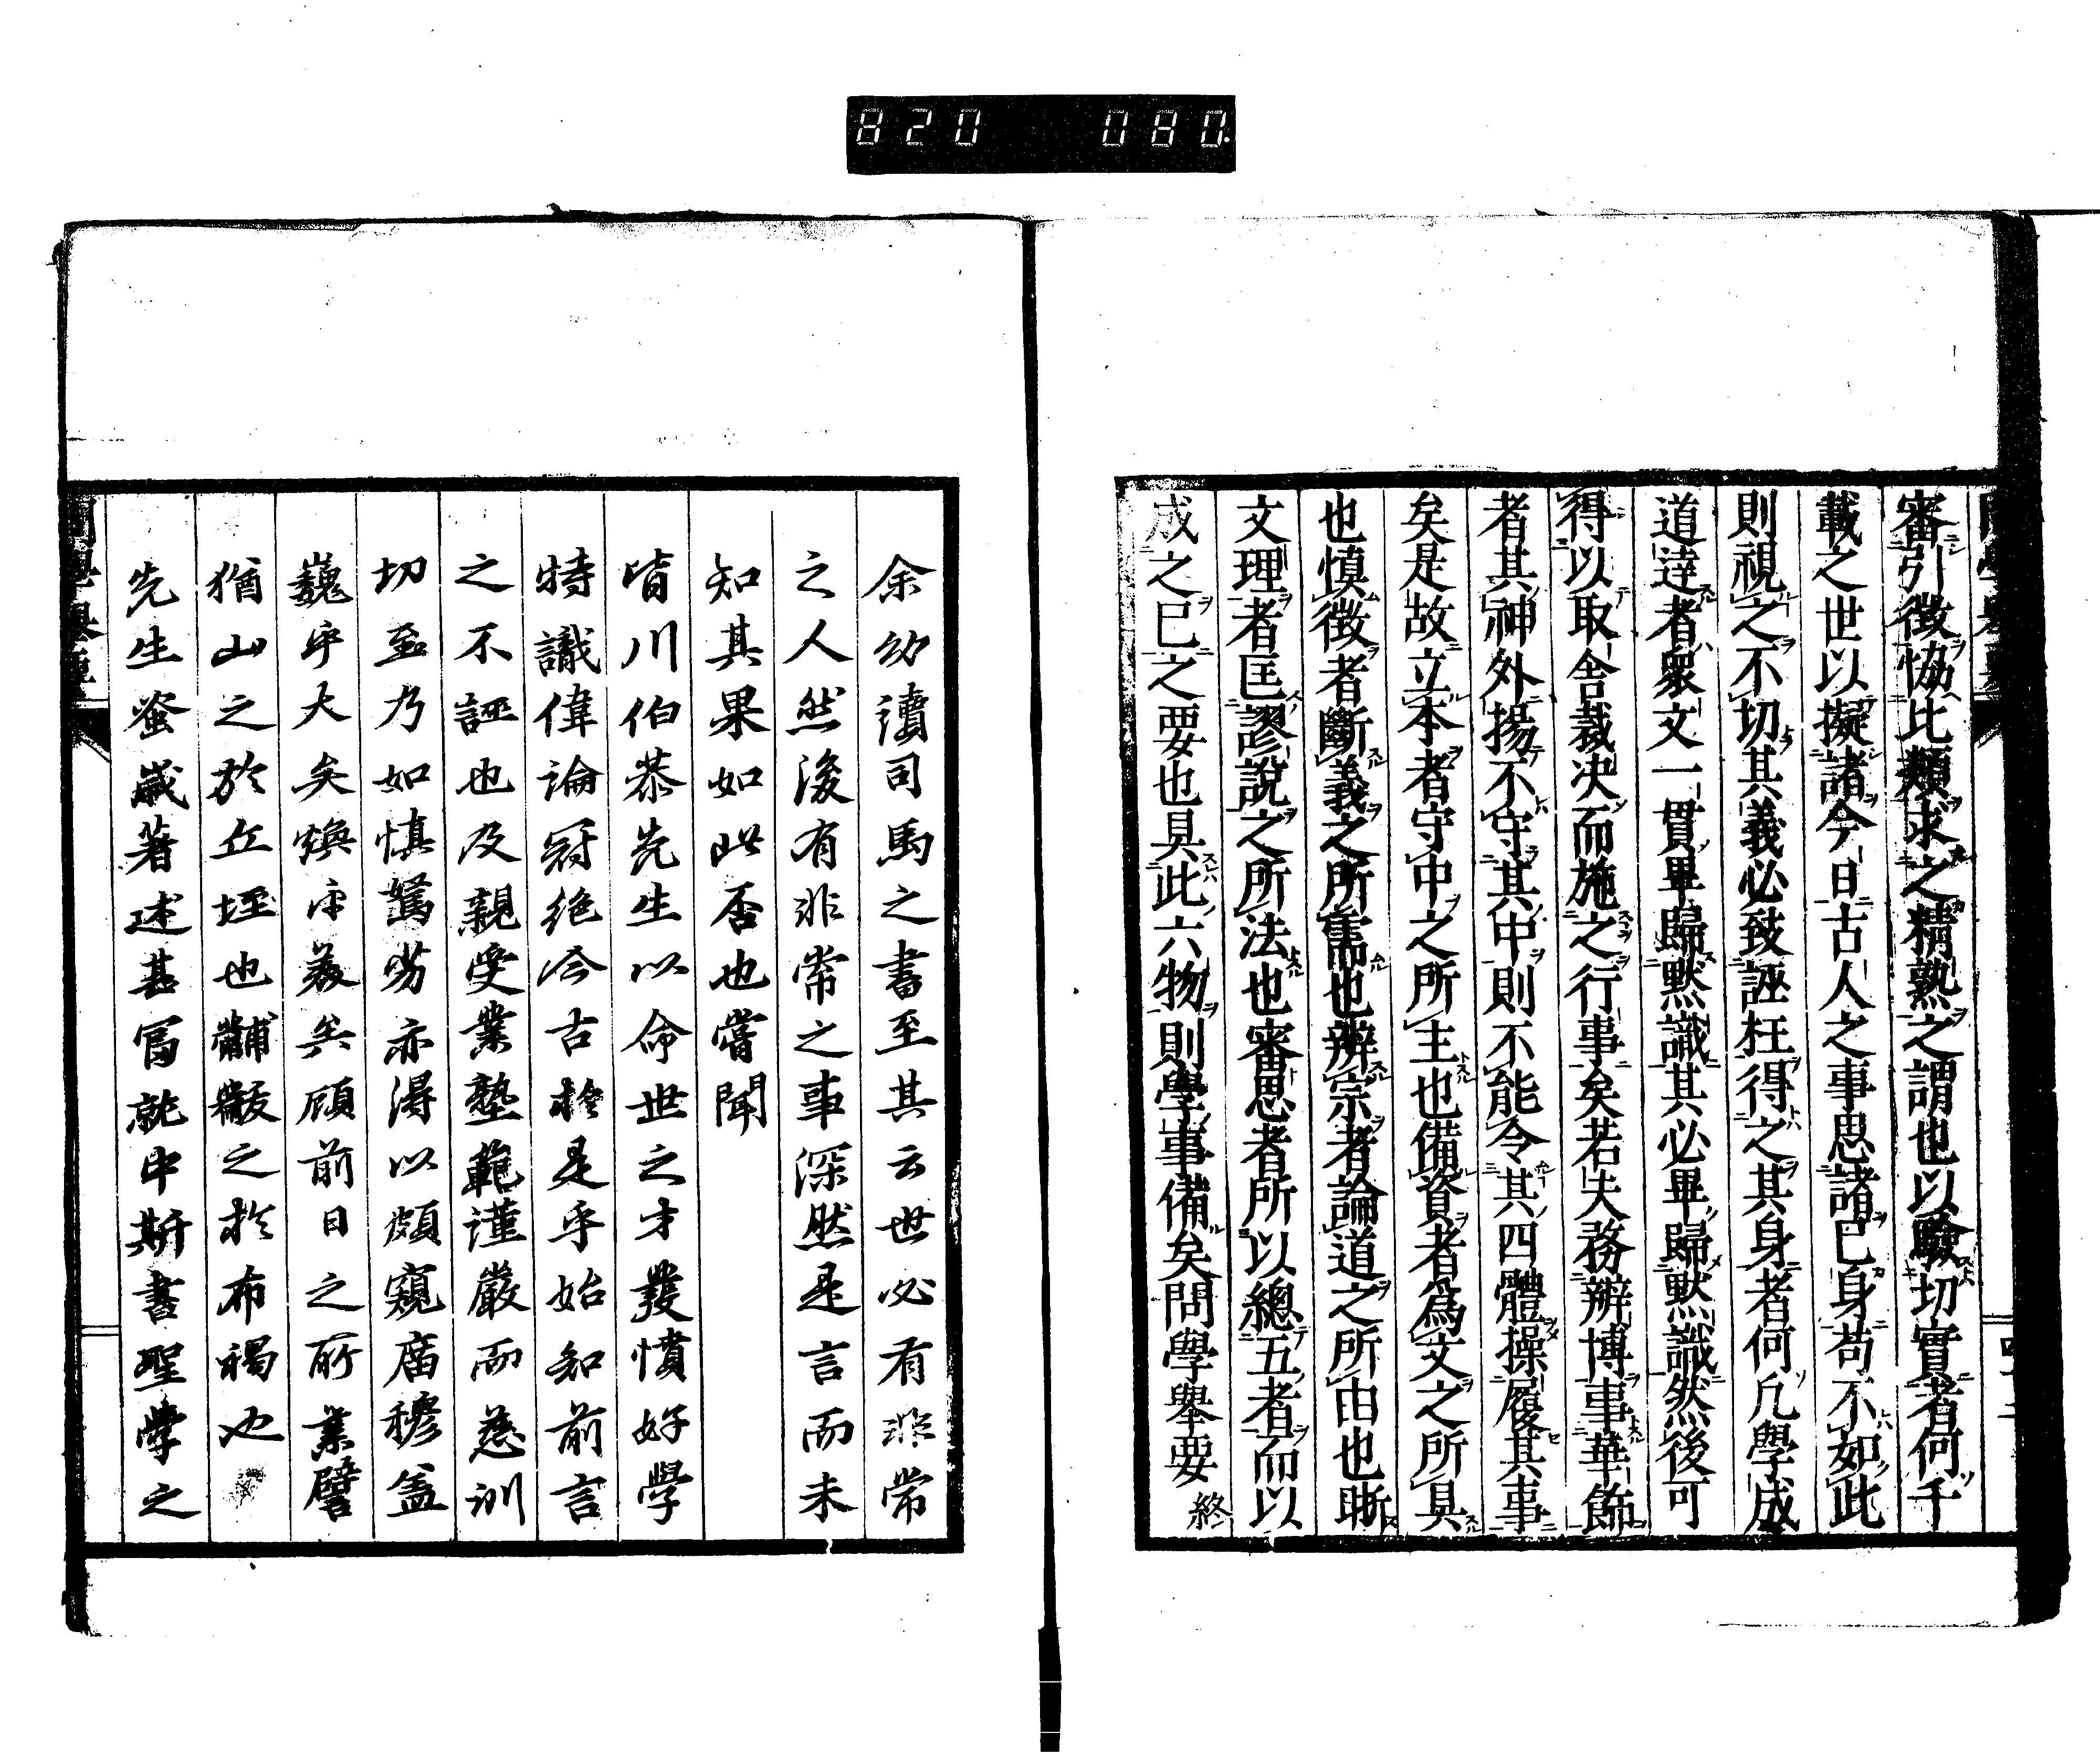 820 080
審引徴協比類求之精熟之謂也以驗切實者何千
載之世以擬諸今日古人之事思諸已身苟不如此
則視之不切其義必致誣枉得之其身者何凡學成
道達者衆文一貫畢歸默識其必畢歸默識然後可
得以取舍裁决而施之行事矣若夫務辦博事華飾
者其神外揚不守其中則不能令其四體操履其事
矣是故立本者守中之所主也備資者爲文之所具
也慎徴者斷義之所需也辨宗者論道之所由也晣
文理者匡謬說之所法也審思者所以總五者而以
成之已之要也具此六物則學事備矣問學舉要 終
余幼讀司馬之書至其云世必有非常
之人然後有非常之事深然是言而未
知其果如此否也嘗聞
皆川伯恭先生以命世之才發憤好學
特識偉論冠絶今古於是乎始知前言
之不誣也及親受業塾範謹嚴而慈訓
切至乃如愼駑劣亦得以頗窺庿穆盖
巍乎大矣煥乎美矣顧前日之所業譬
猶山之於丘垤也黼黻之於布褐也
先生蚤歳著述甚富就中斯書聖學之